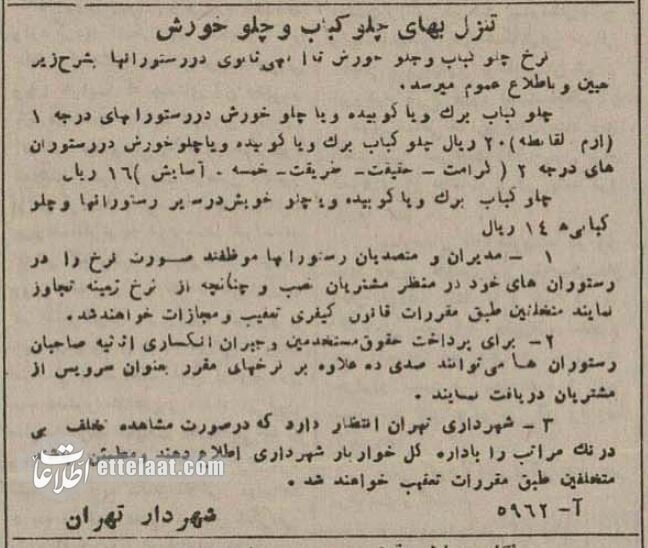 تنزل بهای چلو کباب و چلو خورش
نرخ چلو کباب و چلو خورش تا آگهی ثانوی در رستورانها بشرح زیر
تعیین و باطلاع عموم میرسد.
چلو کباب برك و یا کوبیده و یا چلو خورش در رستورانهای درجه ۱
(ارم لقانطه) ۲۰ ریال چلو کباب برك و یا کوبیده و یا چلو خورش در رستوران
های درجه ۲ ( کرامت ـ حقیقت ـ طریقت ـ خمسه ـ آسایش ) ۱۶ ریال
چلو کباب برك و یا کوبیده و یا چلو خورش در سایر رستورانها و چلو
کبابی‌ها ۱۴ ریال
۱ ـ مدیران و متصدیان رستورانها موظفند صورت نرخ را در
رستوران های خود در منظر مشتریان نصب و چنانچه از نرخ زمینه تجاوز
نمایند متخلفین طبق مقررات قانون کیفری تعقیب و مجازات خواهند شد.
۲ ـ برای پرداخت حقوق مستخدمین و جبران انکساری اثاثیه صاحبان
رستوران ها می‌توانند صدی ده علاوه بر نرخهای مقرر بعنوان سرویس از
مشتریان دریافت نمایند .
۳ ـ شهرداری تهران انتظار دارد که درصورت مشاهده تخلف بی
درنك مراتب را باداره کل خواربار شهرداری اطلاع دهند و مطمئن
متخلفین طبق مقررات تعقیب خواهند شد .
آ ـ ۵۹۶۲
شهردار تهران
اطلاعات ettelaat.com